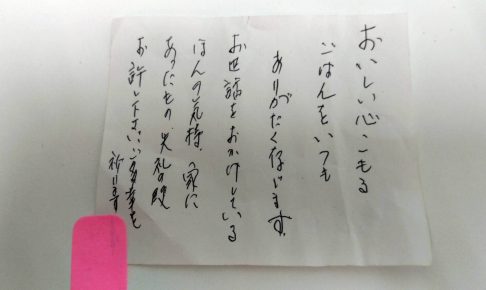 おいしい心こもる
ごはんをいつも
ありがたく存じます。
お世話をおかけしている
ほんの気持 家に
あったもの 失礼の段
お許し下さい ご多幸を
祈ります